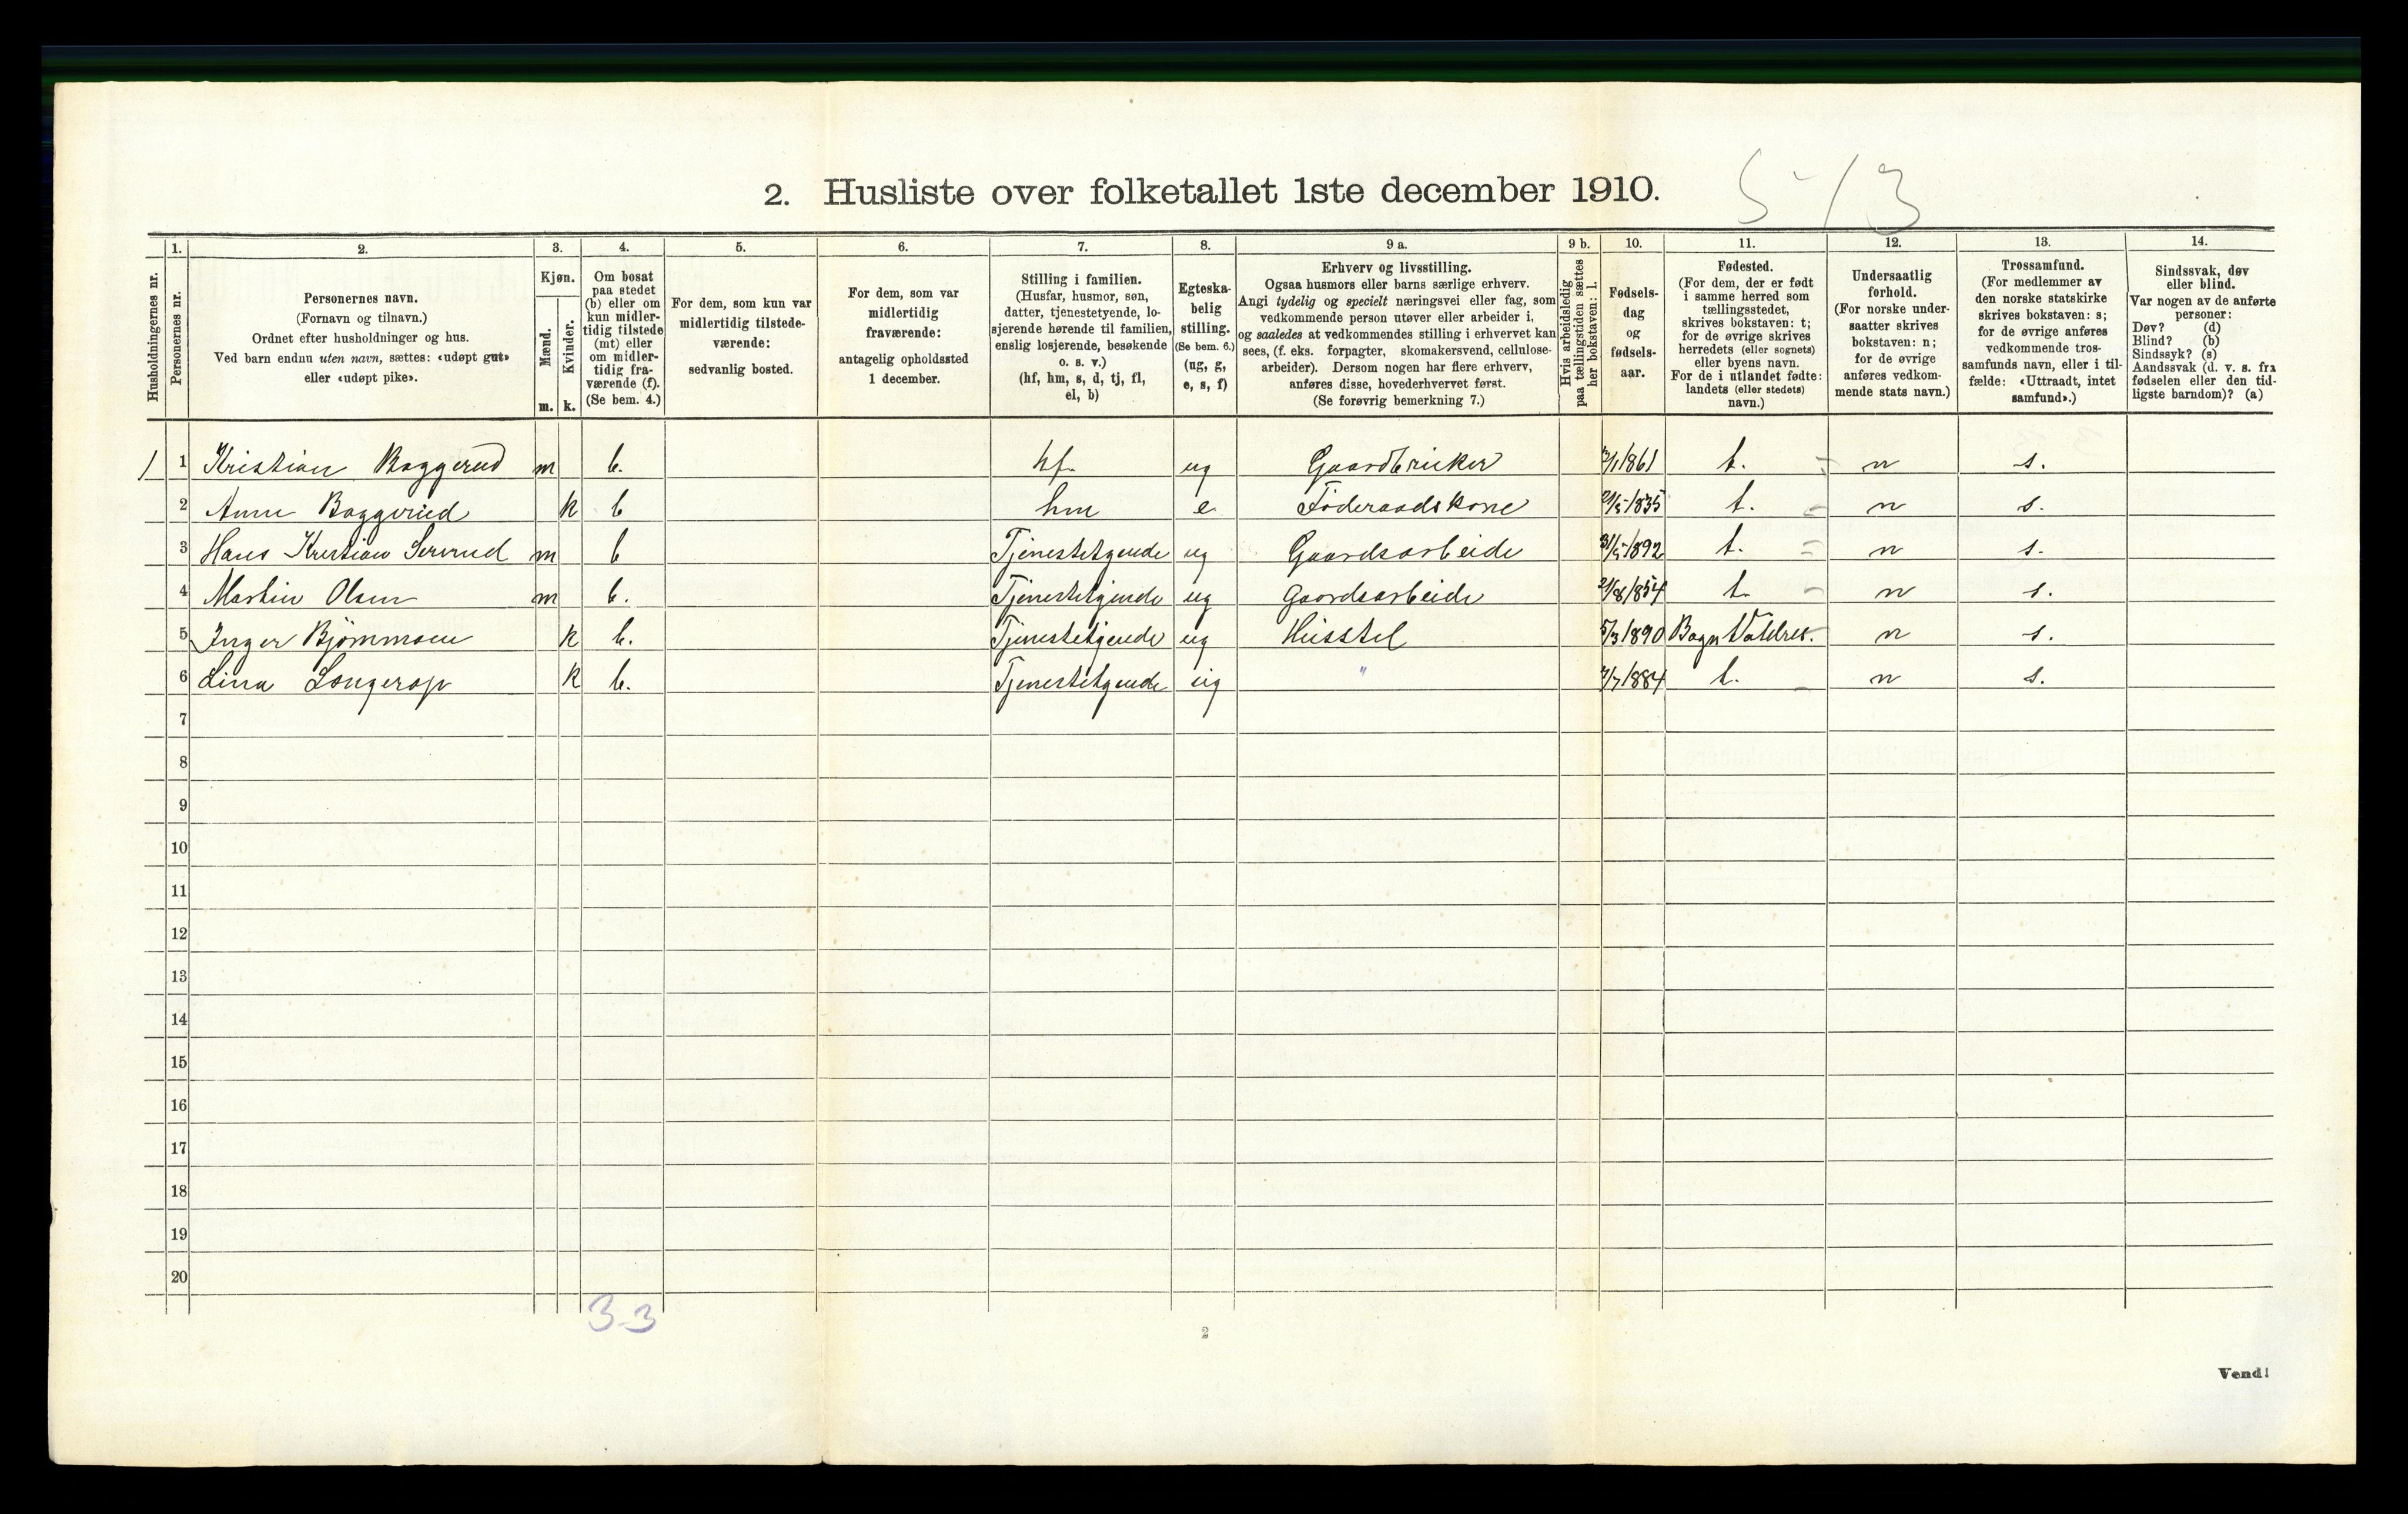 2. Husliste over folketallet 1ste december 1910.
5-/3
Husholdningernes nr.
1.
Personernes nr.
2.
Personernes navn.
(Fornavn og tilnavn.)
Ordnet efter husholdninger og hus.
Ved barn endnu uten navn, sættes: «udøpt gut»
eller «udøpt pike».
3.
Kjøn.
Mænd.
Kvinder.
m. k.
4.
Om bosat
paa stedet
(b) eller om
kun midler-
tidig tilstede
(mt) eller
om midler-
tidig fra-
værende (f).
(Se bem. 4.)
5.
For dem, som kun var
midlertidig tilstede-
værende:
sedvanlig bosted.
6.
For dem, som var
midlertidig
fraværende:
antagelig opholdssted
1 december.
7.
Stilling i familien.
(Husfar, husmor, søn,
datter, tjenestetyende, lo-
sjerende hørende til familien,
enslig losjerende, besøkende
o. s. v.)
(hf, hm, s, d, tj, fl,
el, b)
8.
Egteska-
belig
stilling.
(Se bem. 6.)
(ug, g,
e, s, f)
9 a.
Erhverv og livsstilling.
Ogsaa husmors eller barns særlige erhverv.
Angi tydelig og specielt næringsvei eller fag, som
vedkommende person utøver eller arbeider i,
og saaledes at vedkommendes stilling i erhvervet kan
sees, (f. eks. forpagter, skomakersvend, cellulose-
arbeider). Dersom nogen har flere erhverv,
anføres disse, hovederhvervet først.
(Se forøvrig bemerkning 7.)
9 b.
Hvis arbeidsledig
paa tællingstiden sættes
her bokstaven: l.
10.
Fødsels-
dag
og
fødsels-
aar.
11.
Fødested.
(For dem, der er født
i samme herred som
tællingsstedet,
skrives bokstaven: t;
for de øvrige skrives
herredets (eller sognets)
eller byens navn.
For de i utlandet fødte:
landets (eller stedets)
navn.)
12.
Undersaatlig
forhold.
(For norske under-
saatter skrives
bokstaven: n;
for de øvrige
anføres vedkom-
mende stats navn.)
13.
Trossamfund.
(For medlemmer av
den norske statskirke
skrives bokstaven: s;
for de øvrige anføres
vedkommende tros-
samfunds navn, eller i til-
fælde: «Uttraadt, intet
samfund».)
14.
Sindssvak, døv
eller blind.
Var nogen av de anførte
personer:
Døv? (d)
Blind? (b)
Sindssyk? (s)
Aandssvak (d. v. s. fra
fødselen eller den tid-
ligste barndom)? (a)
1 1 Kristian Baggerud m b. hf. ug Gaardbruker /1 1861 t. n s.
2 Anne Baggerud k b hm e Föderaadskone 21/5 1835 t. n s.
3 Hans Kristian m b Tjenestetyende ug Gaardsarbeide 31/5 1892 t. n s.
4 Martin Olsen m b. Tjenestetyende ug gaardsarbeide 21/8 1854 t. n s.
5 Inger Björnmoen k b. Tjenestetyende ug Husstel 5/3 1890 Bagn Valdres. n s.
6 Lina k b. Tjenestetyende ug " 7/7 1884 t. n s.
7
8
9
10
11
12
13
14
15
16
17
18
19
20
3-3
2
Vend!